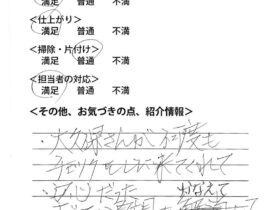 満足 普通 不満
<仕上がり>
満足 普通 不満
<掃除・片付け>
満足 普通 不満
<担当者の対応>
満足 普通 不満
<その他、お気づきの点、紹介情報>
・大久保さんが何度も
チェックをしに来てくれて
安心だった